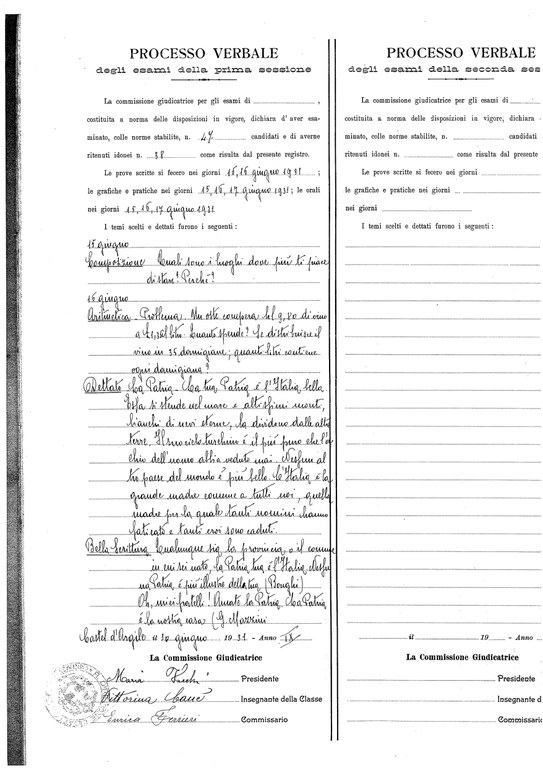 PROCESSO VERBALE
degli esami della prima sessione
La commissione giudicatrice per gli esami di ,
costituita a norma delle disposizioni in vigore, dichiara d'aver esa-
minato, colle norme stabilite, n. 47 candidati e di averne
ritenuti idonei n. 38 come risulta dal presente registro.
Le prove scritte si fecero nei giorni 15, 16 giugno 1931 ;
le grafiche e pratiche nei giorni 15, 16, 17 giugno 1931; le orali
nei giorni 15, 16, 17 giugno 1931
I temi scelti e dettati furono i seguenti :
15 giugno
Composizione Quali sono i luoghi dove più ti piace
di stare? Perché?
16 giugno
Aritmetica - Problema. Un oste compera hl 9,80 di vino
a al litro. Quanto spende? Se distribuisce il
vino in 35 damigiane; quanti litri contiene
ogni damigiana?
Dettato La Patria - La tua Patria è l'Italia bella.
Essa si stende nel mare e altissimi monti,
bianchi di nevi eterne, la dividono dalle altre
terre. Il suo cielo turchino è il più puro che l'oc
chio dell'uomo abbia veduto mai. Nessun al
tro paese del mondo è più bello. L'Italia è la
grande madre comune a tutti noi, quella
madre per la quale tanti uomini hanno
faticato e tanti eroi sono caduti.
Bella Scrittura Qualunque sia la provincia o il comune
in cui sei nato, la Patria tua è l'Italia. Nessu
na Patria è più illustre della tua (Bonghi)
Oh, miei fratelli! Amate la Patria. La Patria
è la nostra casa (G. Mazzini
Castel d'Argile a 20 giugno 1931 - Anno IX
La Commissione Giudicatrice
Maria Presidente
Vittorina Insegnante della Classe
Enrica Ferrieri Commissario
PROCESSO VERBALE
degli esami della seconda ses
La commissione giudicatrice per gli esami di
costituita a norma delle disposizioni in vigore, dichiara d
minato, colle norme stabilite, n. candidati
ritenuti idonei n. come risulta dal presente
Le prove scritte si fecero nei giorni
le grafiche e pratiche nei giorni
nei giorni
I temi scelti e dettati furono i seguenti :
a 19 - Anno
La Commissione Giudicatrice
Presidente
Insegnante d
Commissario